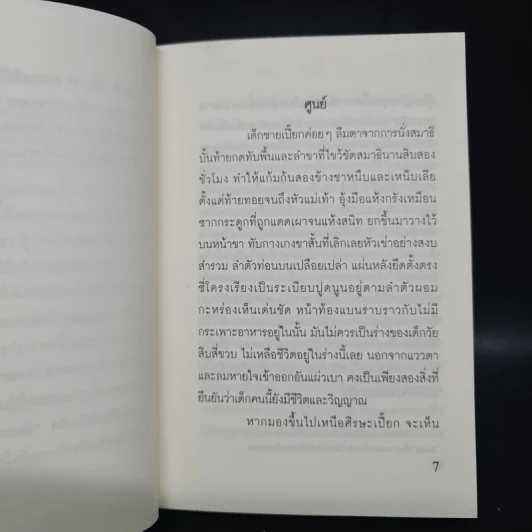 ศูนย์
เด็กชายเปี๊ยกค่อยๆ ลืมตาจากการนั่งสมาธิ
บั้นท้ายกดทับพื้นและลำขาที่ไขว้ขัดสมาธินานสิบสอง
ชั่วโมง ทำให้แก้มก้นสองข้างชาหนืบและเหน็บเลีย
ตั้งแต่ท้ายทอยจนถึงหัวแม่เท้า อุ้งมือแห้งกรังเหมือน
ซากกระดูกที่ถูกแดดเผาจนแห้งสนิท ยกขึ้นมาวางไว้
บนหน้าขา ทับกางเกงขาสั้นที่เลิกเลยหัวเข่าอย่างสงบ
สำรวม ลำตัวท่อนบนเปลือยเปล่า แผ่นหลังยืดตั้งตรง
ซี่โครงเรียงเป็นระเบียบปูดนูนอยู่ตามลำตัวผอม
กะหร่องเห็นเด่นชัด หน้าท้องแบนราบราวกับไม่มี
กระเพาะอาหารอยู่ในนั้น มันไม่ควรเป็นร่างของเด็กวัย
สิบสี่ขวบ ไม่เหลือชีวิตอยู่ในร่างนี้เลย นอกจากแววตา
และลมหายใจเข้าออกอันแผ่วเบา คงเป็นเพียงสองสิ่งที่
ยืนยันว่าเด็กคนนี้ยังมีชีวิตและวิญญาณ
หากมองขึ้นไปเหนือศีรษะเปี๊ยก จะเห็น
7